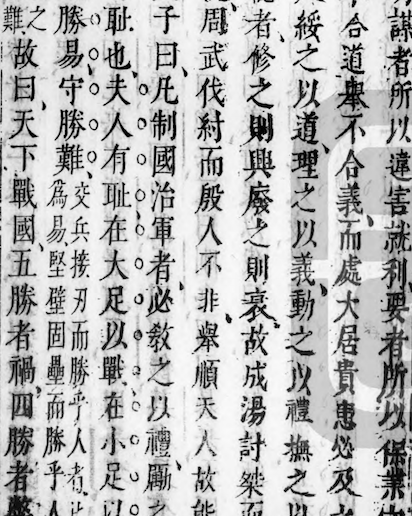 謀者所以違害就利要者所以保業
合道舉不合義而處大居貴患必及
綏之以道理之以義動之以禮撫之以
者修之則興廢之則衰故成湯討桀而
周武伐紂而殷人不非舉順天人故能
子曰凡制國治軍者必教之以禮勵之
耻也夫人有耻在大足以戰在小足以
勝易守勝難
交兵接刃而勝乎人者此
為易堅壁固壘而勝乎人
之
難
故曰天下戰國五勝者禍四勝者弊